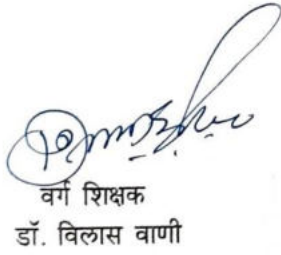 वर्ग शिक्षक
डॉ. विलास वाणी